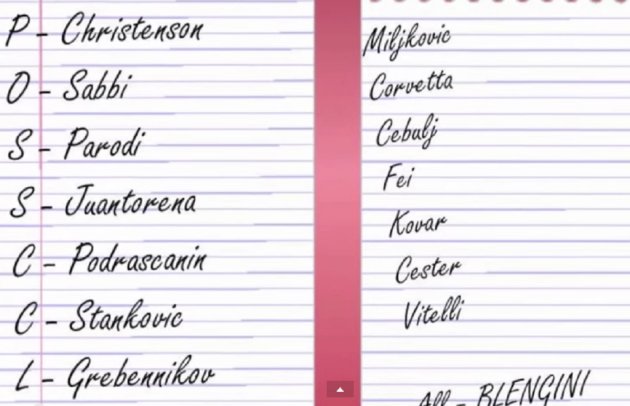 P - Christenson
O - Sabbi
S - Parodi
S - Juantorena
C - Podrascanin
C - Stankovic
L - Grebennikov
Miljkovic
Corvetta
Cebulj
Fei
Kovar
Cester
Vitelli
All - BLENGINI